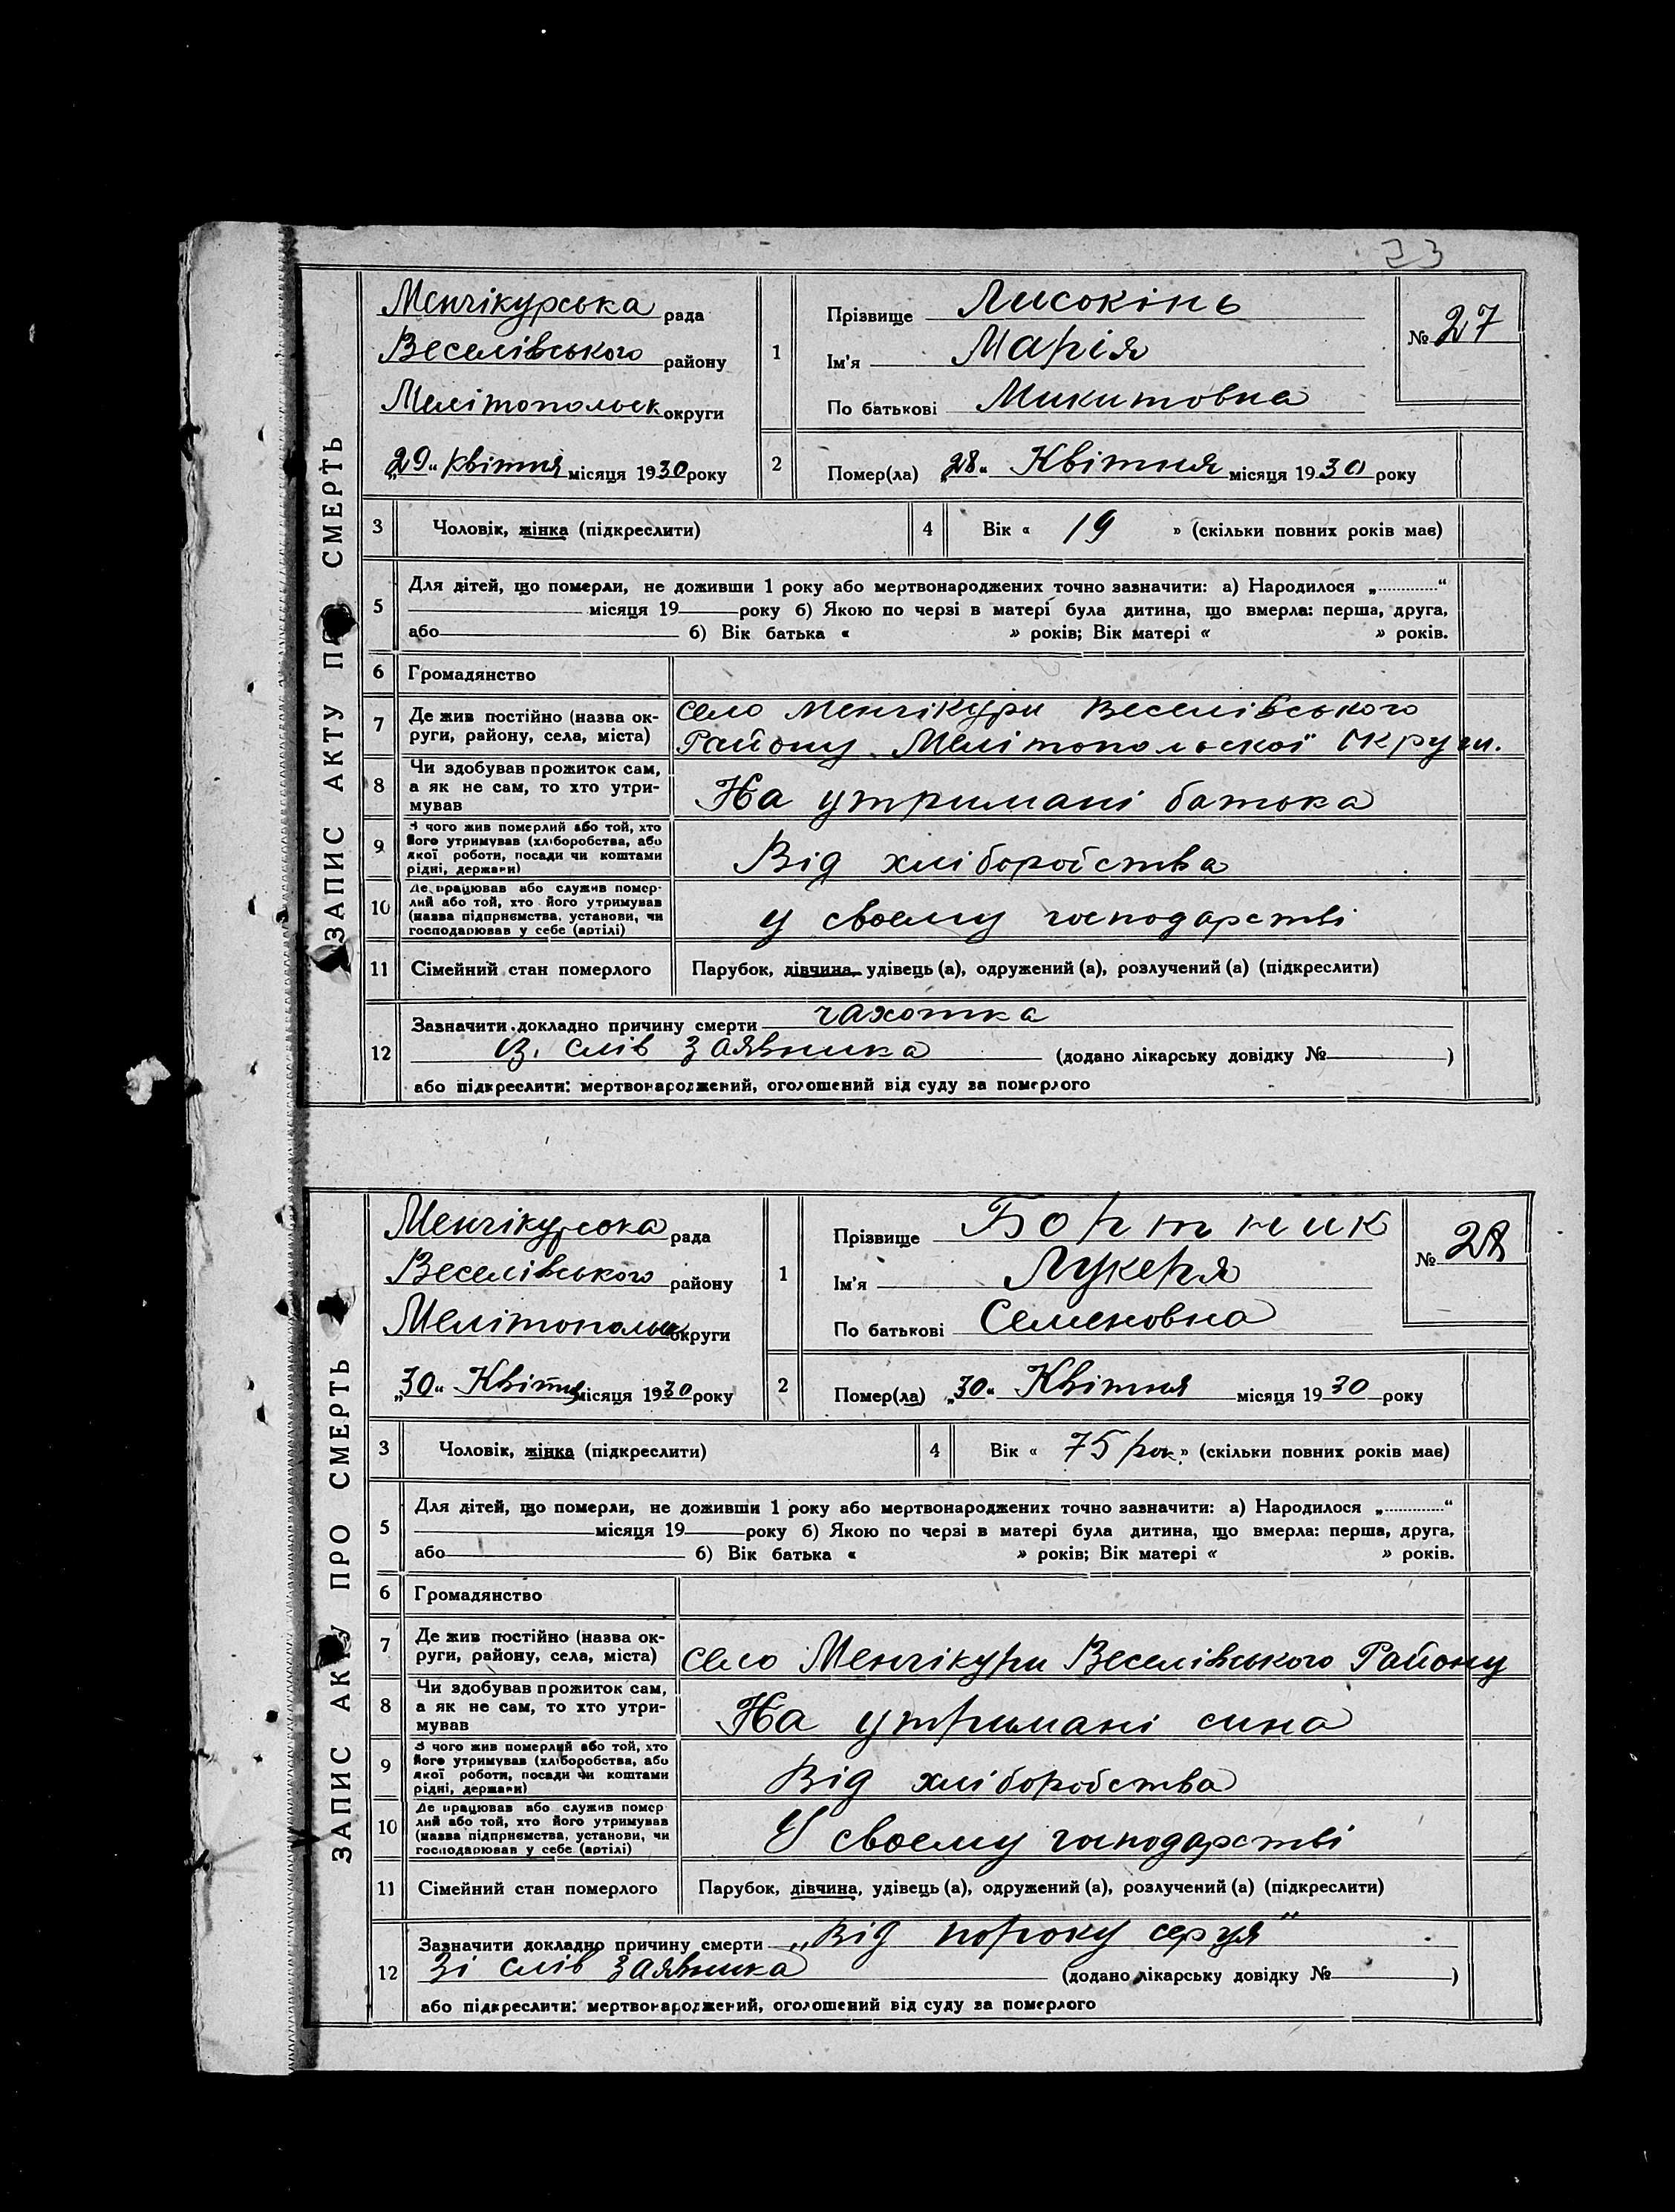 23
ЗАПИС АКТУ ПРО СМЕРТЬ
Менчікурська рада
Веселівського району
Мелітопольск округи
„29“ квітня місяця 1930 року
1
Прізвище Лисокінь
Ім'я Марія
По батькові Микитовна
№ 27
2
Помер(ла) „28“ Квітня місяця 1930 року
3 Чоловік, жінка (підкреслити)
4 Вік « 19 » (скільки повних років має)
5
Для дітей, що померли, не доживши 1 року або мертвонароджених точно зазначити: а) Народилося „............“
місяця 19 року б) Якою по черзі в матері була дитина, що вмерла: перша, друга,
або б) Вік батька « » років; Вік матері « » років.
6 Громадянство
7
Де жив постійно (назва ок-
руги, району, села, міста)
село Менчікури Веселівського
Району Мелітопольскої Округи.
8
Чи здобував прожиток сам,
а як не сам, то хто утри-
мував
На утримані батька
9
З чого жив померлий або той, хто
його утримував (хліборобства, або
якої роботи, посади чи коштами
рідні, держави)
Від хліборобства
10
Де працював або служив помер-
лий або той, хто його утримував
(назва підприємства, установи, чи
господарював у себе (артілі)
у своему господарстві
11 Сімейний стан померлого
Парубок, дівчина, удівець (а), одружений (а), розлучений (а) (підкреслити)
12
Зазначити докладно причину смерти чахотка
Зі слів заявника (додано лікарську довідку № )
або підкреслити: мертвонароджений, оголошений від суду за померлого
ЗАПИС АКТУ ПРО СМЕРТЬ
Менчікурська рада
Веселівського району
Мелітопольск округи
„30“ Квітня місяця 1930 року
1
Прізвище Бортник
Ім'я Лукеря
По батькові Семеновна
№ 28
2
Помер(ла) „30“ Квітня місяця 1930 року
3 Чоловік, жінка (підкреслити)
4 Вік « 75 рок. » (скільки повних років має)
5
Для дітей, що померли, не доживши 1 року або мертвонароджених точно зазначити: а) Народилося „............“
місяця 19 року б) Якою по черзі в матері була дитина, що вмерла: перша, друга,
або б) Вік батька « » років; Вік матері « » років.
6 Громадянство
7
Де жив постійно (назва ок-
руги, району, села, міста)
село Менчікури Веселівського Району
8
Чи здобував прожиток сам,
а як не сам, то хто утри-
мував
На утримані сина
9
З чого жив померлий або той, хто
його утримував (хліборобства, або
якої роботи, посади чи коштами
рідні, держави)
Від хліборобства
10
Де працював або служив помер
лий або той, хто його утримував
(назва підприємства, установи, чи
господарював у себе (артілі)
У своему господарстві
11 Сімейний стан померлого
Парубок, дівчина, удівець (а), одружений (а), розлучений (а) (підкреслити)
12
Зазначити докладно причину смерти „Від пороку серця“
Зі слів заявника (додано лікарську довідку № )
або підкреслити: мертвонароджений, оголошений від суду за померлого